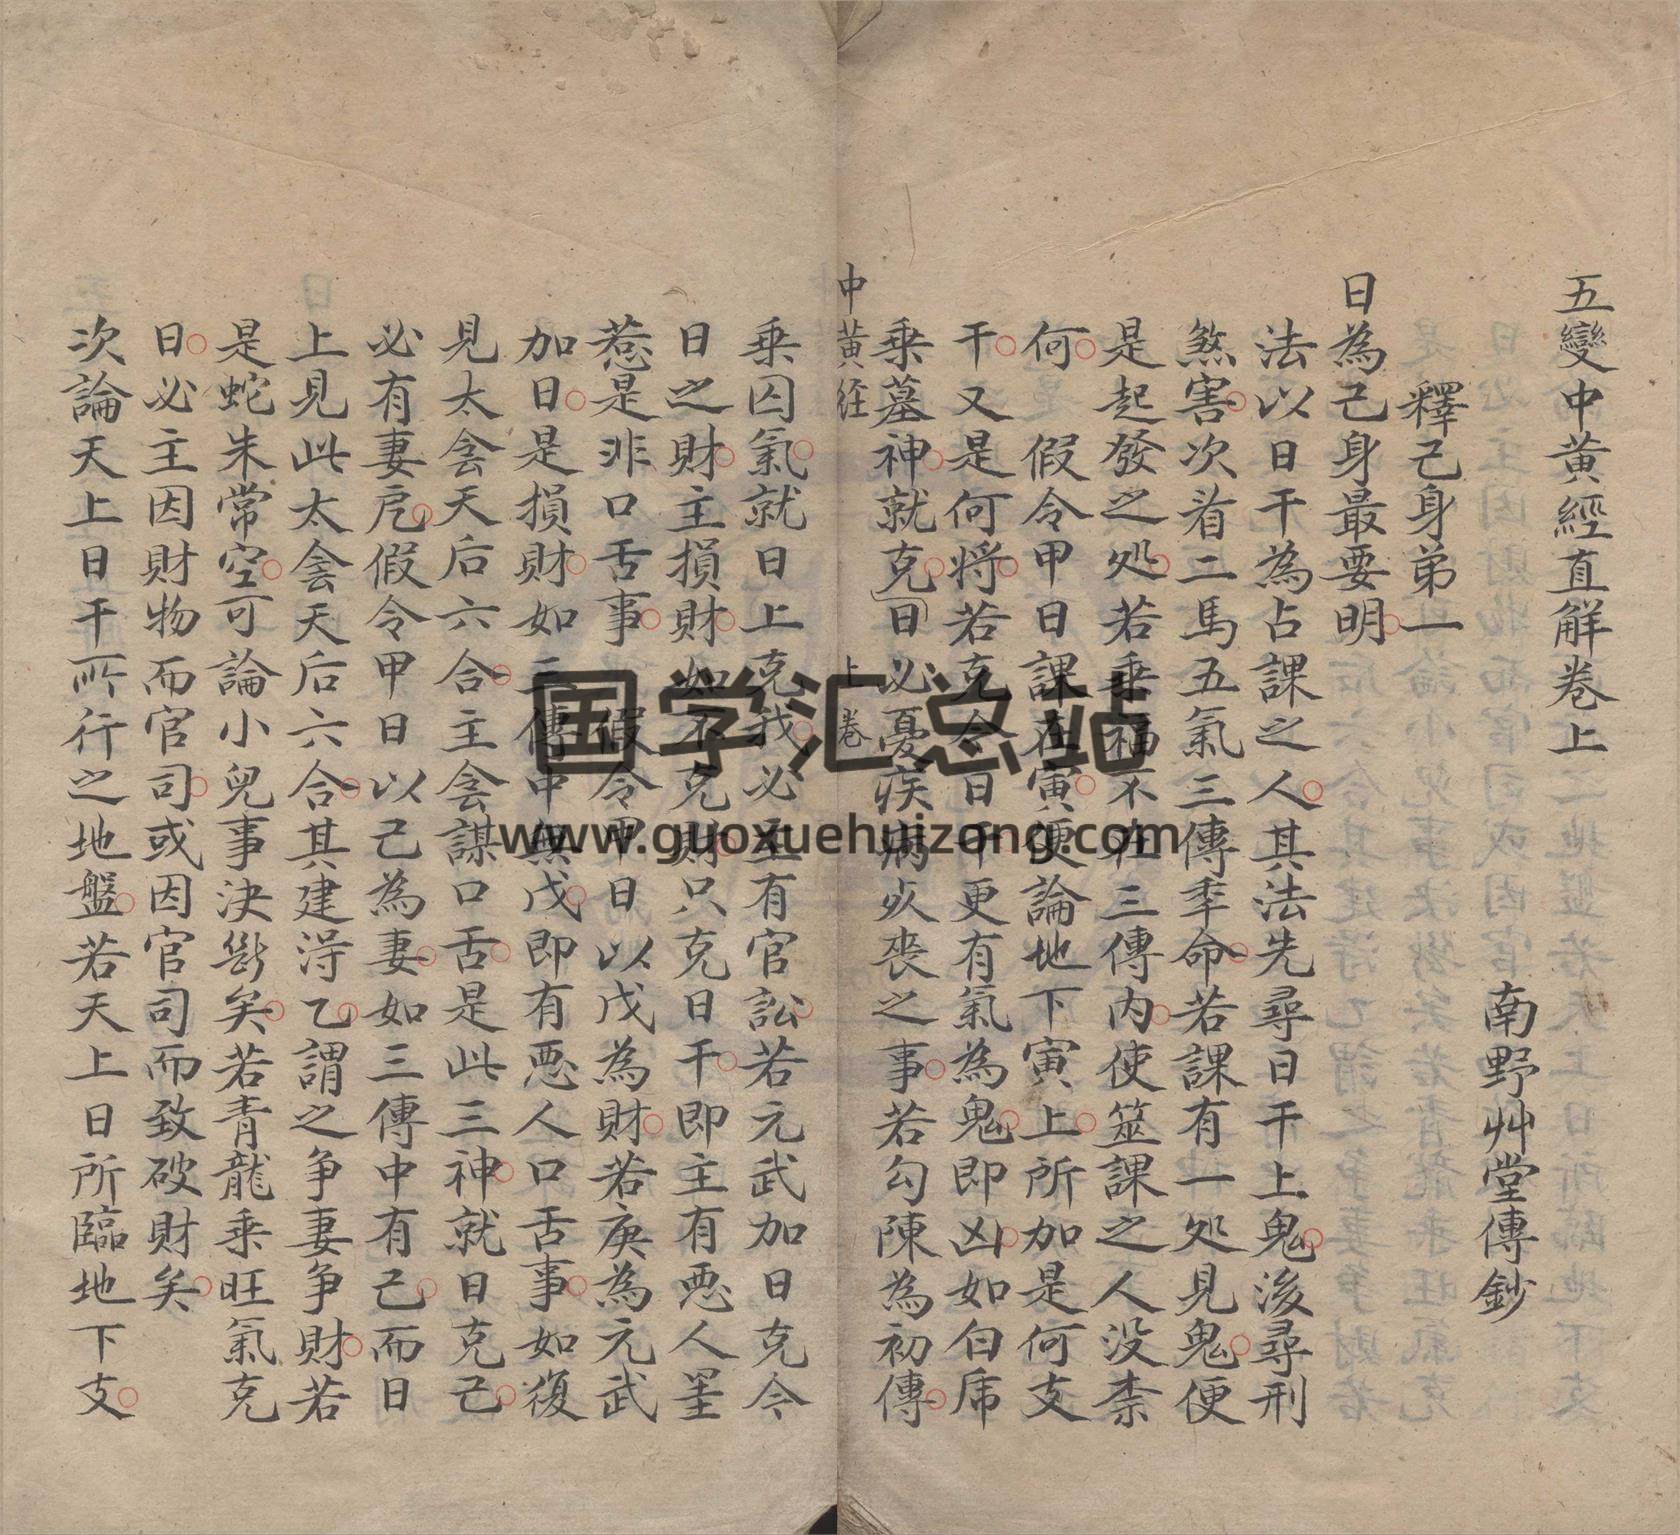 五變中黄經直解卷上
南野艸堂傳鈔
釋己身第一
日為己身最要明
法以日干為占課之人其法先尋日干上鬼後尋刑
煞害次看二馬五氣三傳年命若課有一処見鬼便
是起發之処若乗福不在三傳内使筮課之人没柰
何 假令甲日課在寅便論地下寅上所加是何支
干又是何将若克今日干更有氣為鬼即凶如白虎
乗墓神就克日必憂疾病死喪之事若勾陳為初傳
中黄經 上卷
乗囚氣就日上克我必主有官訟若元武加日克今
日之財主損財如不克財只克日干即主有惡人星
惹是非口舌事 假令甲日以戊為財若庚為元武
加日是損財如三傳中無戊即有惡人口舌事如復
見太侌天后六合主侌謀口舌是此三神就日克己
必有妻戹假令甲日以己為妻如三傳中有己而日
上見此太侌天后六合其建淂乙謂之争妻争財若
是蛇朱常空可論小兒事决斷矣若青龍乗旺氣克
日必主因財物而官司或因官司而致破財矣
次論天上日干所行之地盤若天上日所臨地下支
国学汇总站
www.guoxuehuizong.com